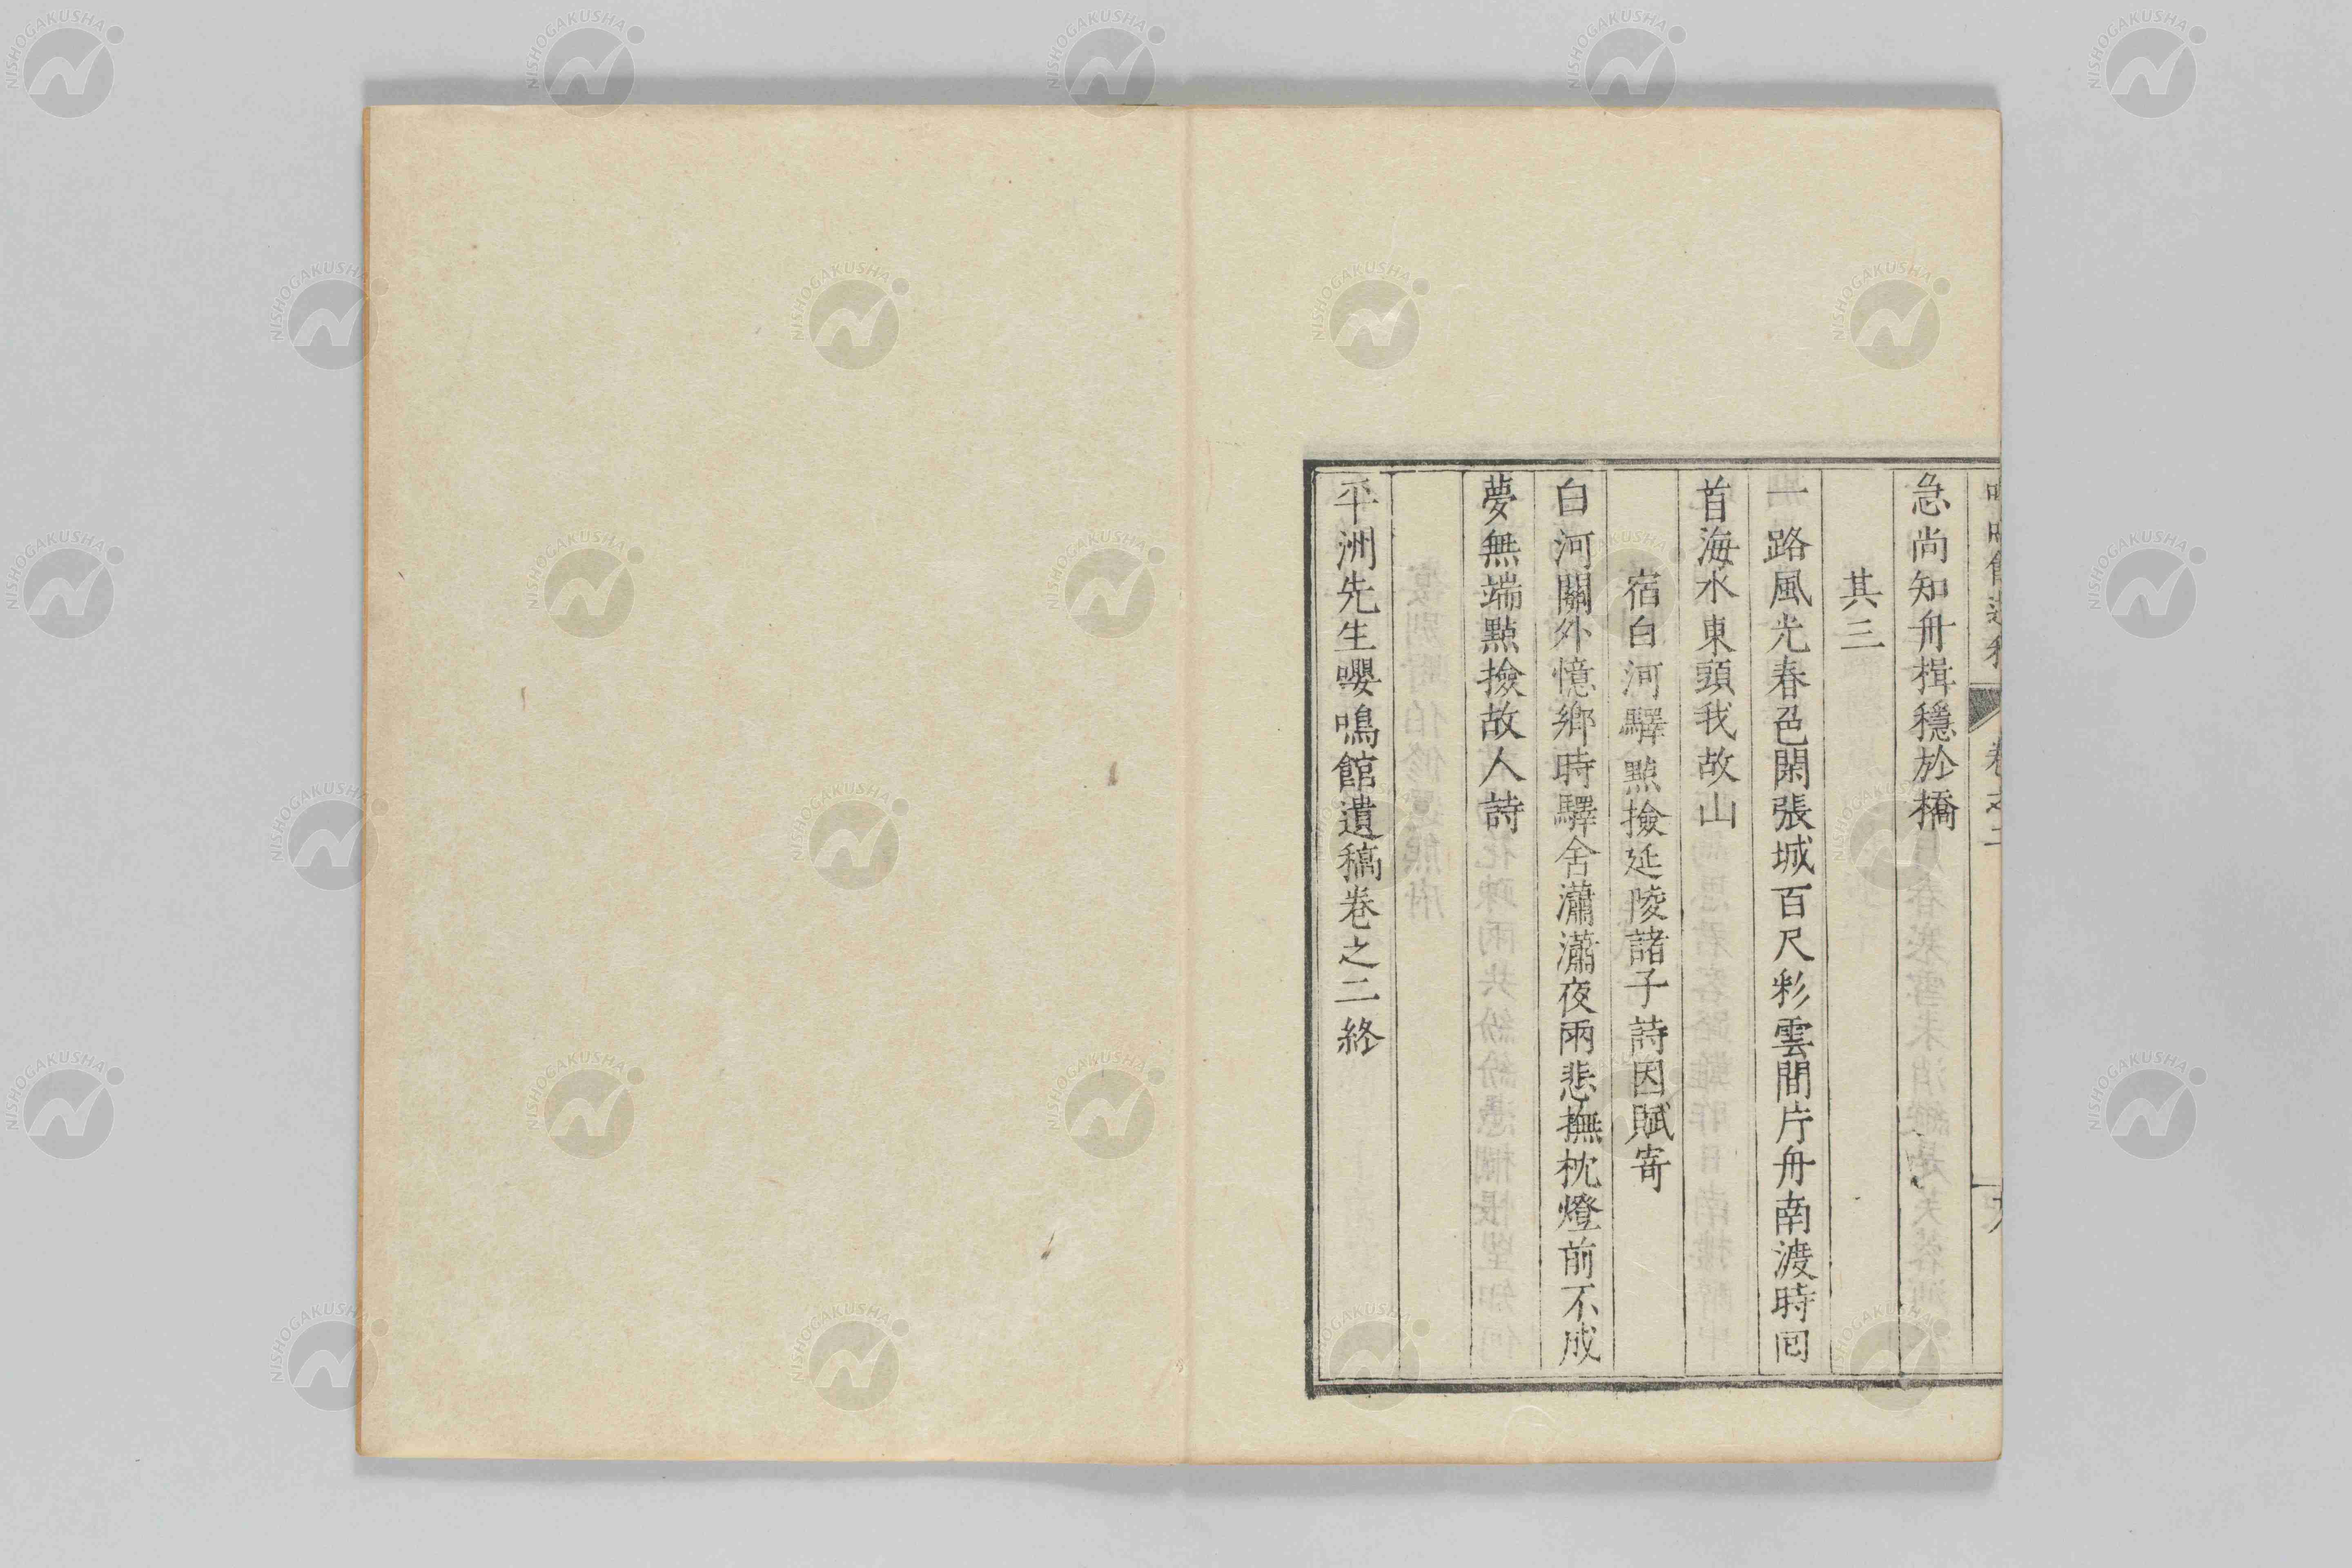 急尚知舟楫穩於橋
其三
一路風光春邑閑張城百尺彩雲間片舟南渡時囘
首海水東頭我故山
宿白河驛點撿延陵諸子詩因賦寄
白河關外憶鄉時驛舍瀟瀟夜雨悲撫枕燈前不成
夢無端點撿故人詩
平洲先生嚶鳴館遺稿卷之二終
NISHOGAKUSHA